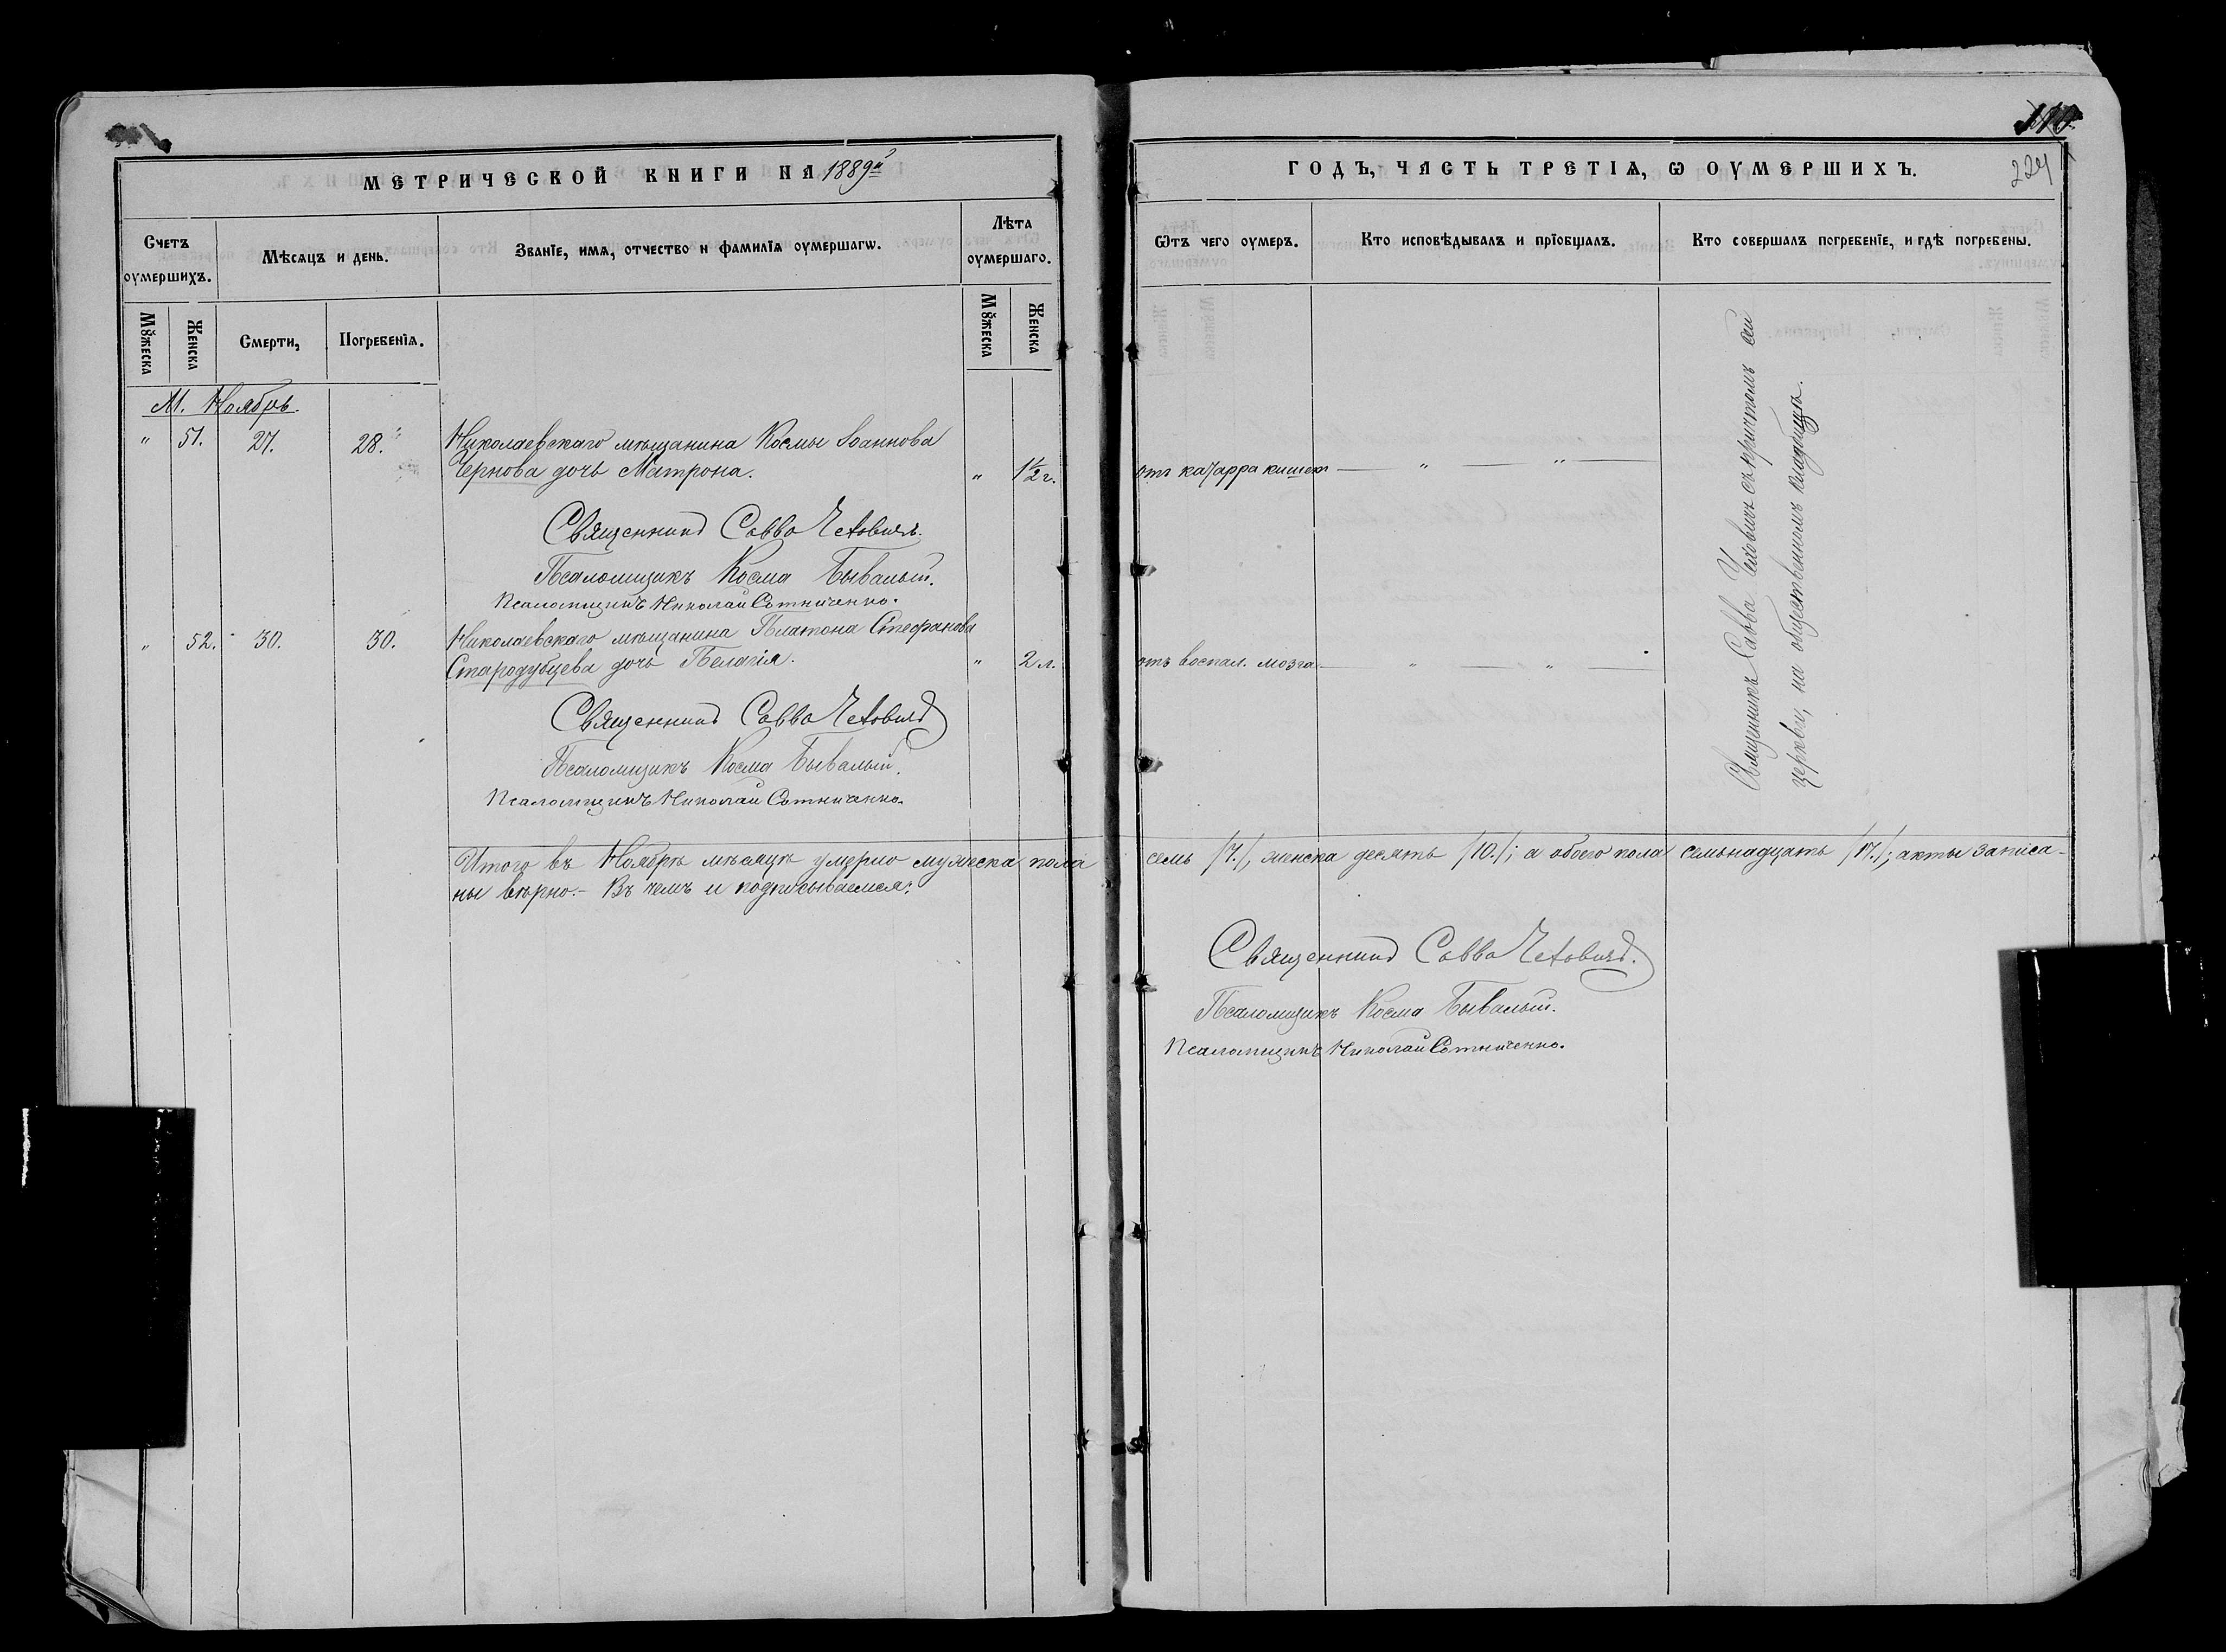 МЕТРИЧЕСКОЙ КНИГИ НА 1889й
Счетъ оумершихъ.
Мѣсѧцъ и день.
Званїе, имѧ, отчество и фамилїѧ оумершагѡ.
Лѣта оумершаго.
Мꙋжеска
Женска
Смерти,
Погребенїѧ.
Мꙋжеска
Женска
М. Ноябрь.
" 51. 27. 28. Николаевскаго мѣщанина Космы Іоаннова
Чернова дочь Матрона. " 1½ г.
Священникъ Савва Чехович.
Псаломщикъ Косма Бывалый.
Псаломщикъ Николай Сотниченко.
" 52. 30. 30. Николаевскаго мѣщанина Платона Стефанова
Стародубцева дочь Пелагія. " 2 л.
Священникъ Савва Чеховичъ
Псаломщикъ Косма Бывалый.
Псаломщикъ Николай Сотниченко.
Итого въ Ноябрѣ мѣсяцѣ умерло мужеска пола
ны вѣрно.- Въ чемъ и подписываемся:
ГОДЪ, ЧАСТЬ ТРЕТІѦ, Ѡ ОУМЕРШИХЪ.
224
Ѿтъ чего оумеръ.
Кто исповѣдывалъ и прїобщалъ.
Кто совершалъ погребенїе, и гдѣ погребены.
отъ катарра кишекъ — " — " —
отъ воспал. мозга — " — " —
Священникъ Савва Чеховичъ съ причтомъ сей
церкви, на общественномъ кладбищѣ.
семь /7./, женска десять /10./; а обоего пола семьнадцать /17./; акты записа-
Священникъ Савва Чеховичъ.
Псаломщикъ Косма Бывалый.
Псаломщикъ Николай Сотниченко.